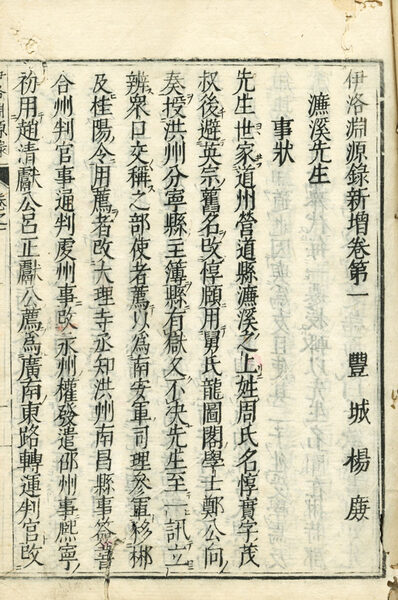 伊洛淵源錄新增卷第一　豐城楊廉
濂溪先生
事狀
先生世家道州營道縣濂溪之上姓周氏名惇實字茂
叔後避英宗舊名改惇頤用舅氏龍圖閣學士鄭公向
奏授洪州分寧縣主簿縣有獄久不决先生至一訊立
辨衆口交稱之部使者薦以爲南安軍司理參軍移郴
及桂陽令用薦者改大理寺丞知洪州南昌縣事簽書
合州判官事通判虔州事改永州權發遣邵州事熙寧
初用趙清獻公呂正獻公薦爲廣南東路轉運判官改